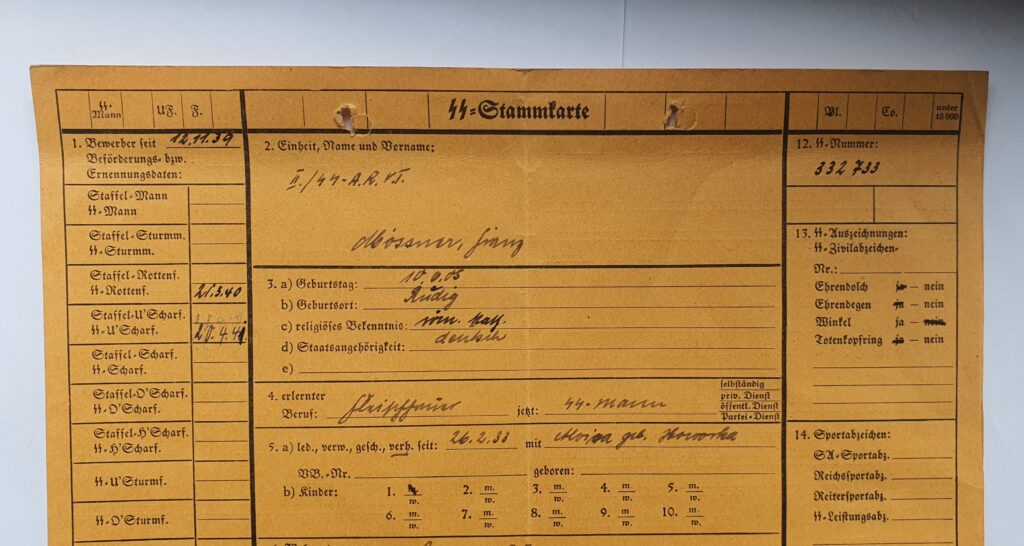 ᛋᛋ-Mann
UF. F.
ᛋᛋ-Stammkarte
Bl. Co. unter 15 000
1. Bewerber seit 12.11.39
Beförderungs- bzw.
Ernennungsdaten:
Staffel-Mann
ᛋᛋ-Mann
Staffel-Sturmm.
ᛋᛋ-Sturmm.
Staffel-Rottenf.
ᛋᛋ-Rottenf.
Staffel-U'Scharf.
ᛋᛋ-U'Scharf.
Staffel-Scharf.
ᛋᛋ-Scharf.
Staffel-O'Scharf.
ᛋᛋ-O'Scharf.
Staffel-H'Scharf.
ᛋᛋ-H'Scharf.
ᛋᛋ-U'Sturmf.
ᛋᛋ-O'Sturmf.
2. Einheit, Name und Vorname:
II./ᛋᛋ-A.R. VI.
Mössner, Franz
3. a) Geburtstag: 10.6.05
b) Geburtsort: Rudig
c) religiöses Bekenntnis: röm. kath.
d) Staatsangehörigkeit: deutsch
e)
4. erlernter
Beruf: jetzt: ᛋᛋ-Mann
selbständig
priv. Dienst
öffentl. Dienst
Partei-Dienst
5. a) led., verw., gesch., verh. seit: 26.2.33 mit geb.
VB.-Nr. geboren:
b) Kinder: 1. m. w. 2. m. w. 3. m. w. 4. m. w. 5. m. w.
6. m. w. 7. m. w. 8. m. w. 9. m. w. 10. m. w.
12. ᛋᛋ-Nummer:
332 733
13. ᛋᛋ-Auszeichnungen:
ᛋᛋ-Zivilabzeichen-
Nr.:
Ehrendolch ja - nein
Ehrendegen ja - nein
Winkel ja - nein
Totenkopfring ja - nein
14. Sportabzeichen:
SA-Sportabz.
Reichssportabz.
Reitersportabz.
ᛋᛋ-Leistungsabz.